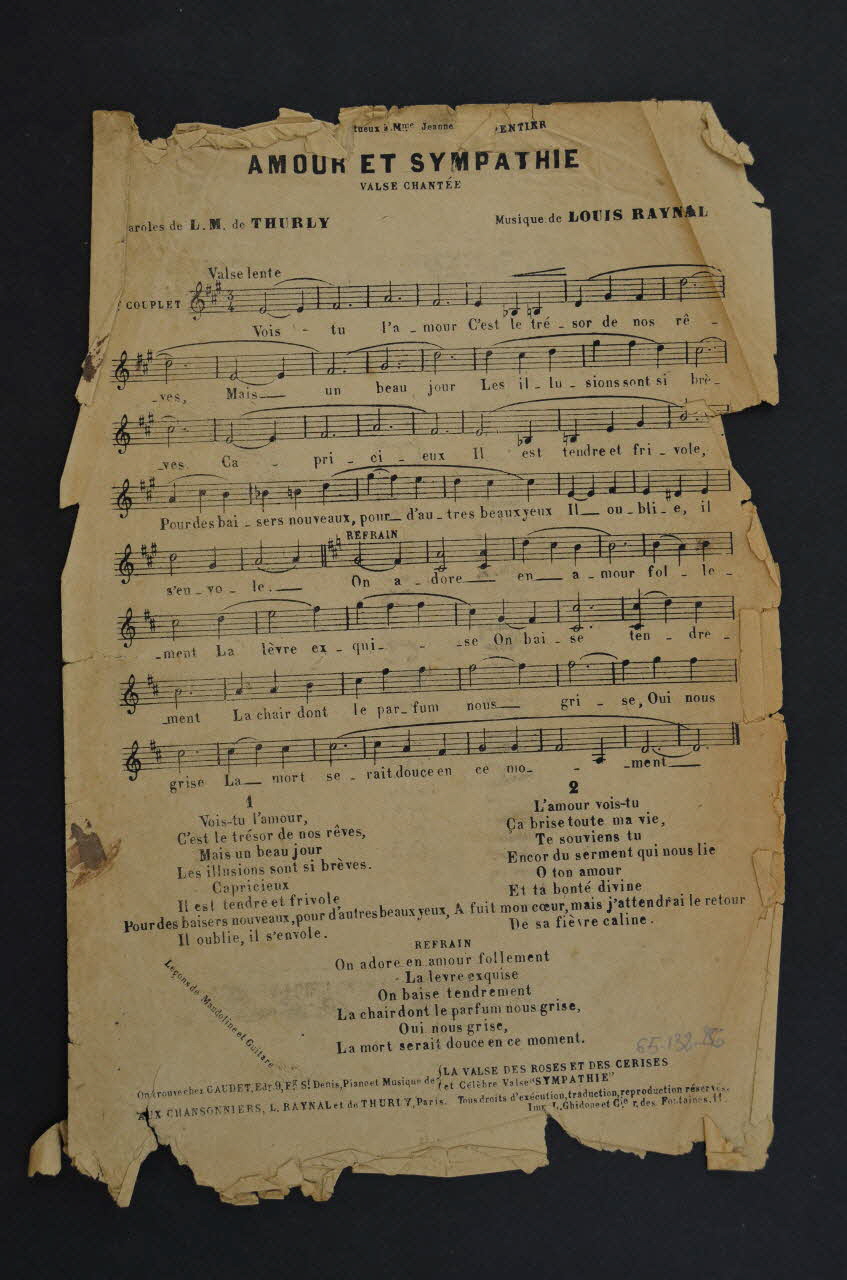 tueux à Mme Jeanne ENTIER
AMOUR ET SYMPATHIE
VALSE CHANTÉE
aroles de L.M. de THURLY
Musique de LOUIS RAYNAL
Valse lente
COUPLET
Vois - tu l'a - mour C'est le tré - sor de nos rê -
- ves, Mais un beau jour Les il - lu - sions sont si brè -
- ves Ca - pri - ci - eux Il est tendre et fri - vole,
Pour des bai - sers nouveaux, pour d'au - tres beaux yeux Il ou - bli - e, il
REFRAIN
s'en - vo - le. On a - dore en a - mour fol - le -
- ment La lèvre ex - qui - se On bai - se ten - dre -
- ment La chair dont le par - fum nous gri - se, Oui nous
grise La mort se - rait douce en ce mo - ment
1
Vois-tu l'amour,
C'est le trésor de nos rêves,
Mais un beau jour
Les illusions sont si brèves.
Capricieux
Il est tendre et frivole
Pour des baisers nouveaux, pour d'autres beaux yeux,
Il oublie, il s'envole.
2
L'amour vois-tu
Ça brise toute ma vie,
Te souviens tu
Encor du serment qui nous lie
O ton amour
Et ta bonté divine
A fuit mon cœur, mais j'attendrai le retour
De sa fièvre caline.
REFRAIN
On adore en amour follement
La levre exquise
On baise tendrement
La chair dont le parfum nous grise,
Oui nous grise,
La mort serait douce en ce moment.
Leçons de Mandoline et Guitare
65.132.
On trouve chez GAUDET, Edr. 9, Fg St Denis, Piano et Musique de {LA VALSE DES ROSES ET DES CERISES
et Célèbre Valse "SYMPATHIE"
AUX CHANSONNIERS, L. RAYNAL et de THURLY, Paris. Tous droits d'exécution, traduction, reproduction réservés.
Imp. L. Ghidone et Cie r. des Fontaines, 11.